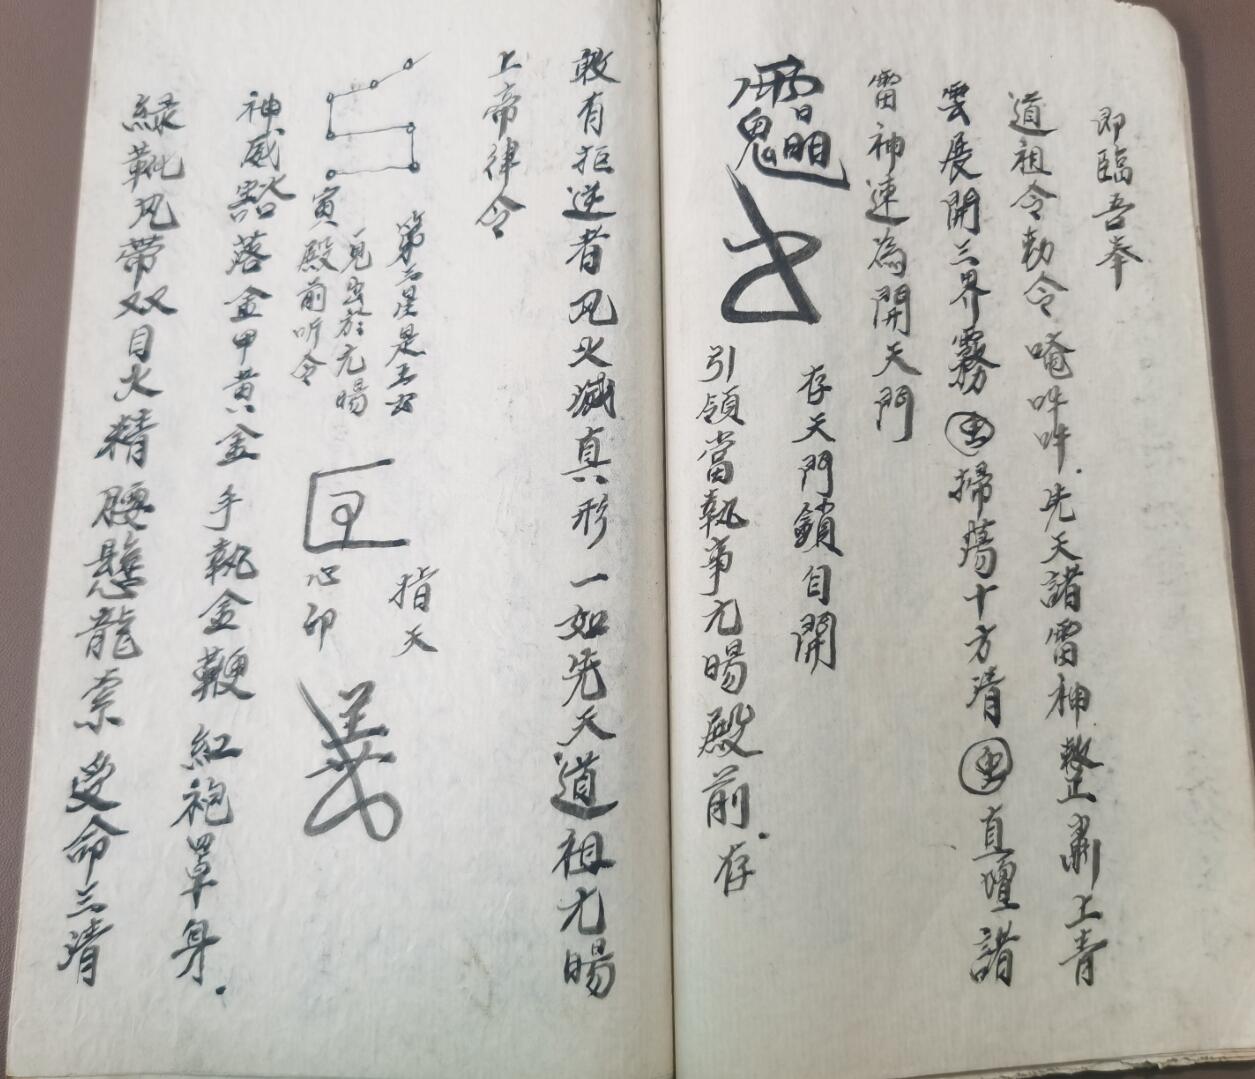 即臨吾奉
道祖令勅令唵吽吽.先天諸雷神整肅上青
雲展開三界霧掃蕩十方清直壇諸
雷神速為開天門
存天門鎖自開
引領當執事元暘殿前.存
敢有拒逆者风火滅真形一如先天道祖元暘
上帝律令
第六星是
見出於元暘
寅殿前听令
指天
心印
神威豁落金甲黄金手執金鞭紅袍罩身.
緑靴风带双目火精腰懸龍索受命三清